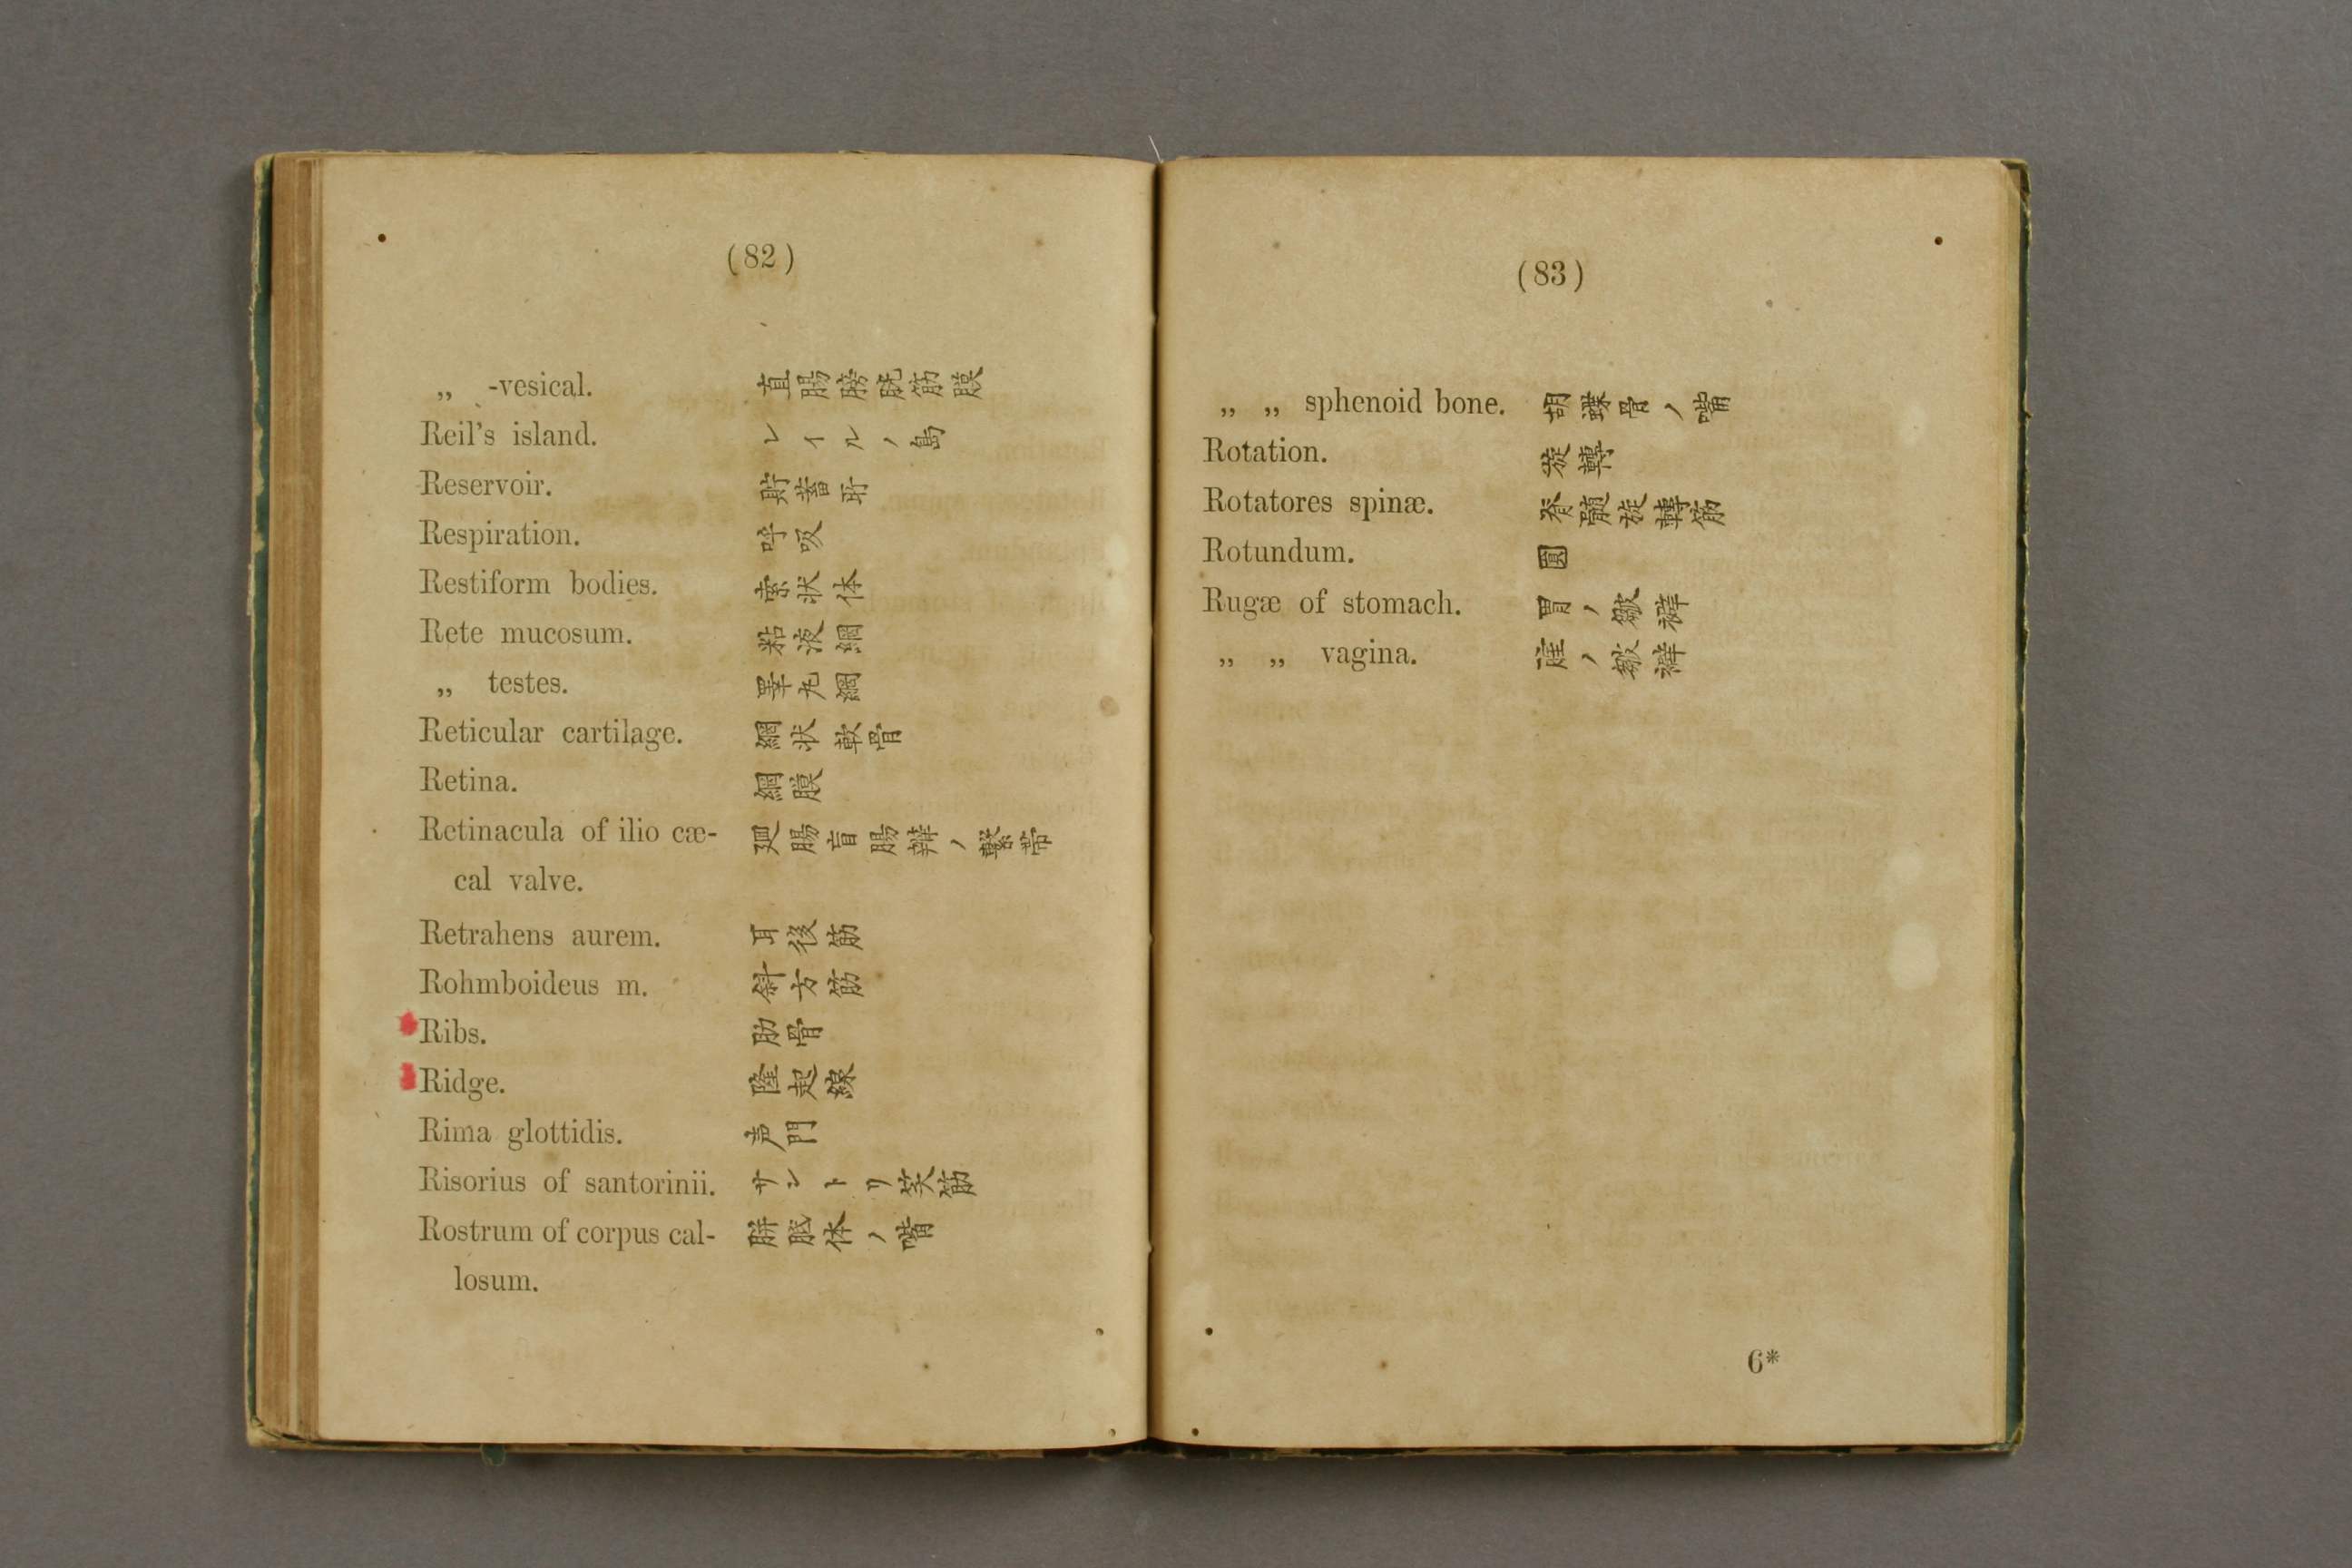 (82)
„ -vesical. 直腸膀胱筋膜
Reil's island. レイルノ島
Reservoir. 貯蓄
Respiration. 呼吸
Restiform bodies. 索状体
Rete mucosum. 粘液網
„ testes. 睾丸網
Reticular cartilage. 網状軟骨
Retina. 網膜
Retinacula of ilio cæ- 廻腸盲腸辨ノ繫帯
cal valve.
Retrahens aurem. 耳後筋
Rohmboideus m. 斜方筋
Ribs. 肋骨
Ridge. 隆起線
Rima glottidis. 声門
Risorius of santorinii. サントリ笑筋
Rostrum of corpus cal- 胼胝体ノ嘴
losum.
(83)
„ „ sphenoid bone. 胡蝶骨ノ嘴
Rotation. 旋轉
Rotatores spinæ. 脊髄旋轉筋
Rotundum. 圓
Rugæ of stomach. 胃ノ皺襞
„ „ vagina. ノ皺襞
6*